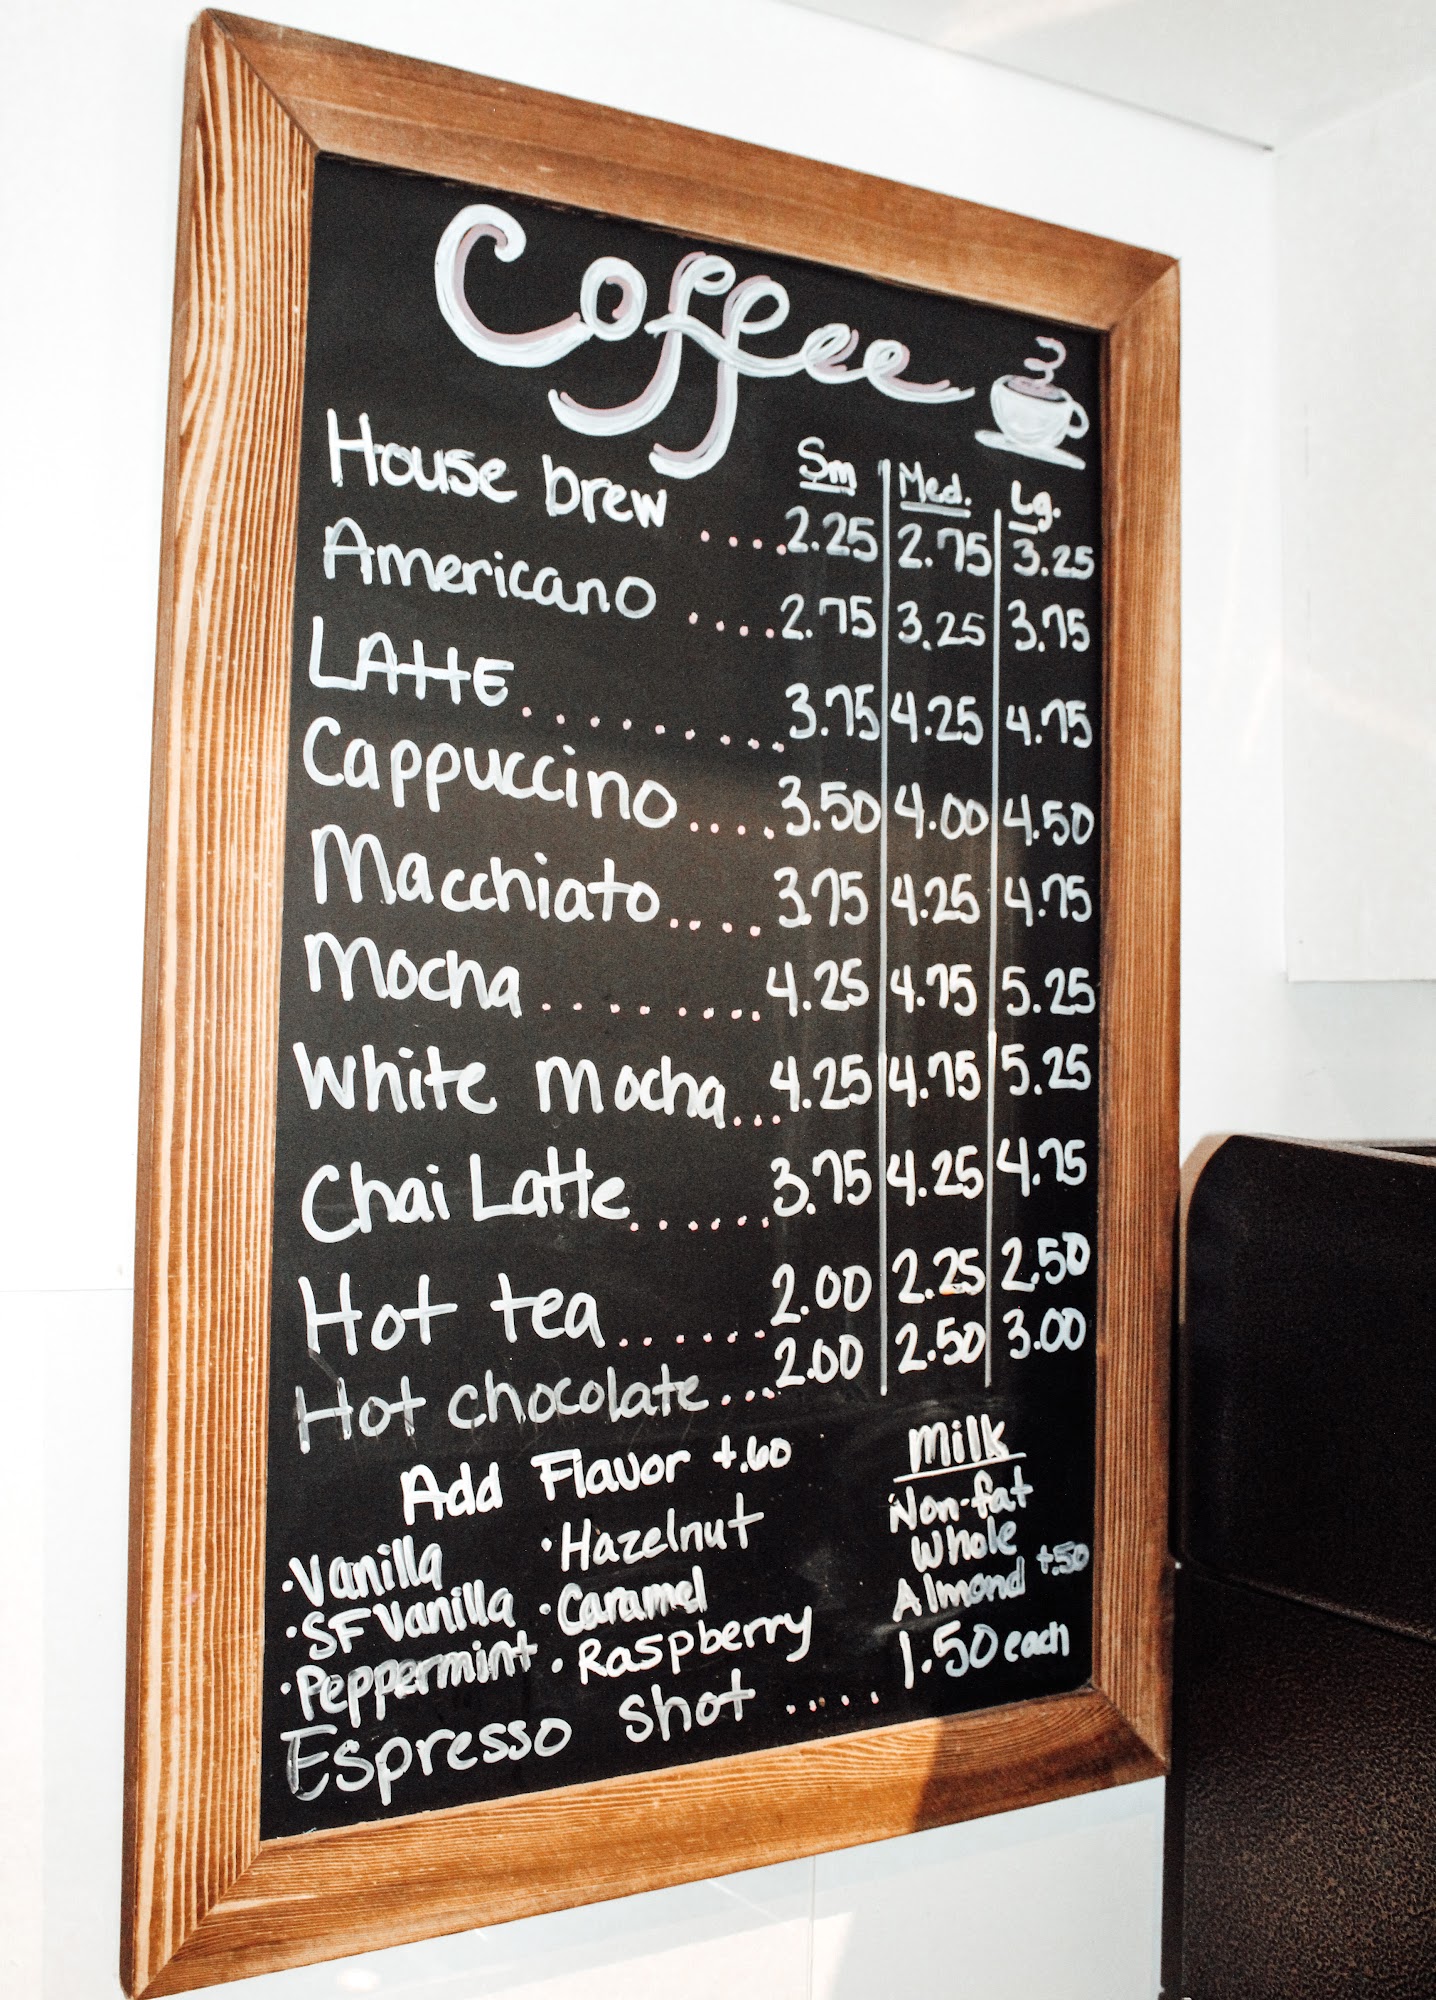 Coffee
Sm Med. Lg.
House brew ....2.25 2.75 3.25
Americano ....2.75 3.25 3.75
LAttE........3.75 4.25 4.75
Cappuccino....3.50 4.00 4.50
Macchiato....3.75 4.25 4.75
Mocha........4.25 4.75 5.25
White Mocha...4.25 4.75 5.25
Chai Latte......3.75 4.25 4.75
Hot tea......2.00 2.25 2.50
Hot chocolate...2.00 2.50 3.00
Add Flavor +.60
·Vanilla ·Hazelnut
·SF Vanilla ·Caramel
·Peppermint ·Raspberry
Milk
Non-fat
Whole
Almond +.50
Espresso shot ..... 1.50 each